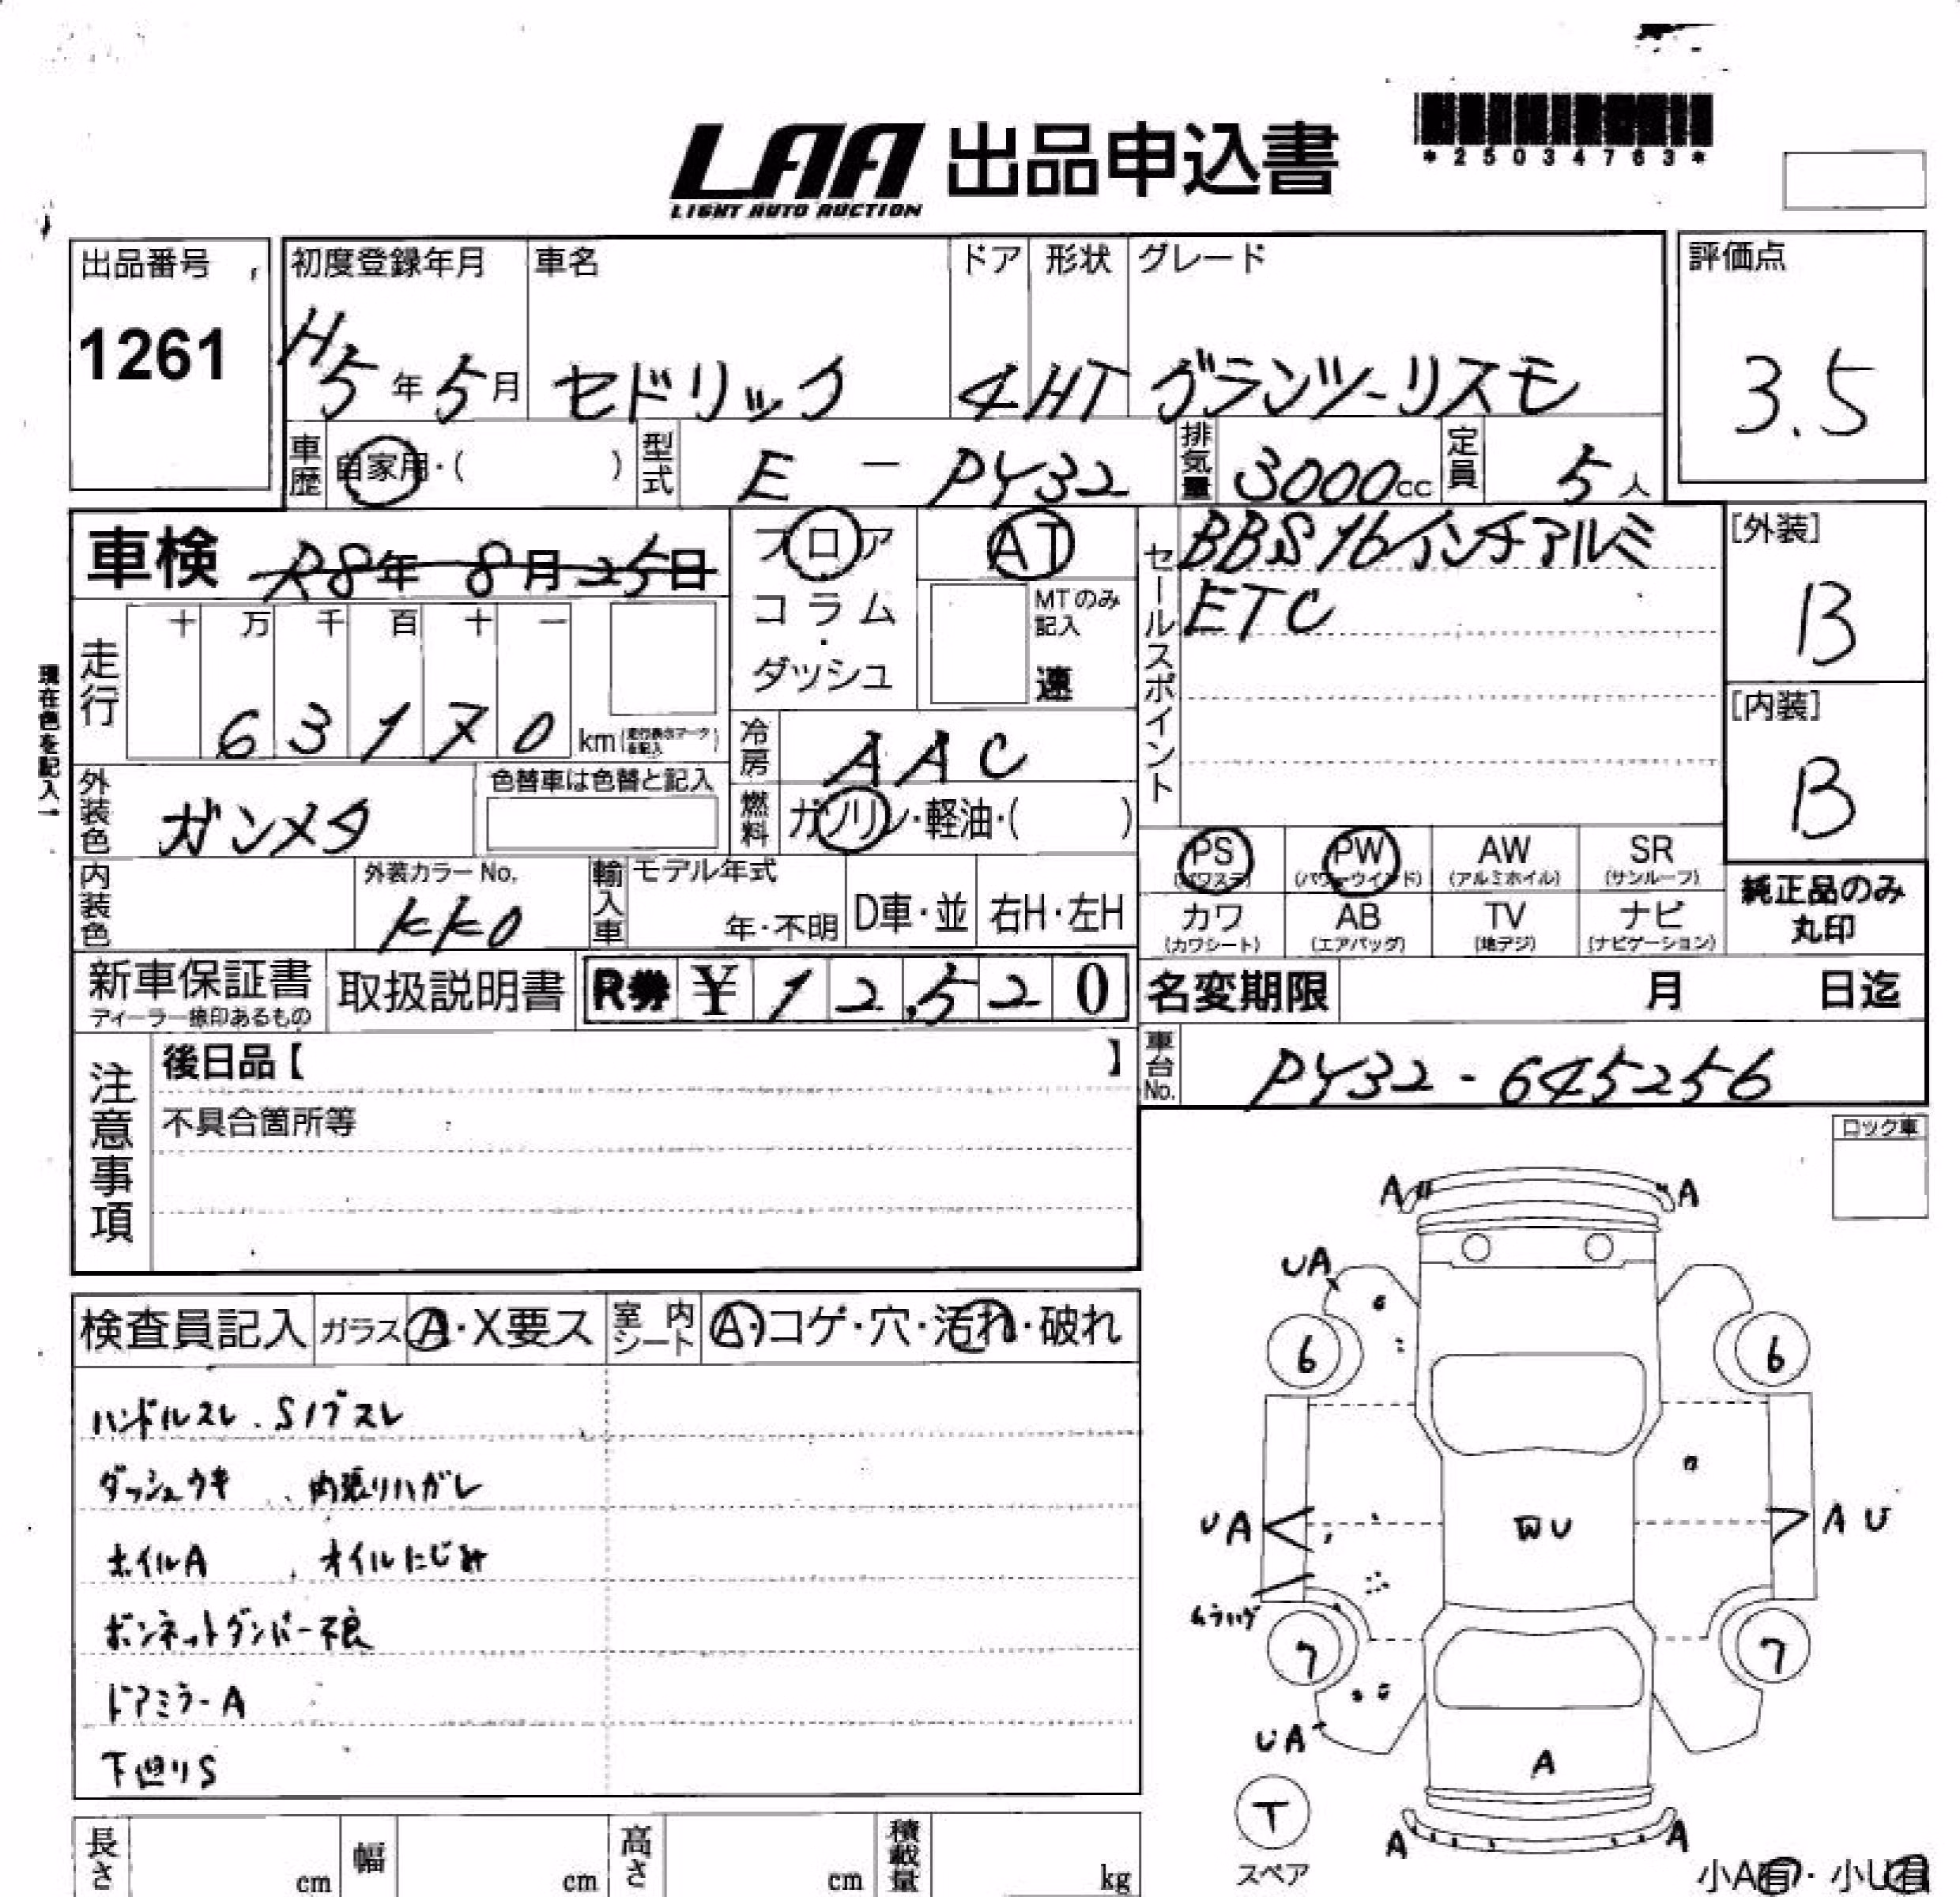 LAA 出品申込書
LIGHT AUTO AUCTION
*25034763*
出品番号
1261
初度登録年月 車名 ドア 形状 グレード
H5年5月 セドリック 4 HT グランツーリスモ
評価点
3.5
車歴 自家用・( ) 型式 E - PY32 排気量 3000cc 定員 5人
車検 R8年 8月25日
フロア AT
コラム・
ダッシュ
MTのみ記入
速
セールスポイント
BBS16インチアルミ
ETC
[外装]
B
[内装]
B
現在色を記入
走行
十 万 千 百 十 一
63170 km
冷房 AAC
外装色 ガンメタ 色替車は色替と記入
燃料 ガソリン・軽油・( )
PS (パワステ) PW (パワーウインド) AW (アルミホイル) SR (サンルーフ)
カワ (カワシート) AB (エアバッグ) TV (地デジ) ナビ (ナビゲーション)
純正品のみ
丸印
内装色 外装カラーNo. KK0
輸入車 モデル年式 年・不明 D車・並 右H・左H
新車保証書 ディーラー捺印あるもの 取扱説明書 R券 ¥12,520
名変期限 月 日迄
車台No. PY32-645256
注意事項
後日品【 】
不具合箇所等
ロック車
検査員記入 ガラス A・X要ス 室内シート A・コゲ・穴・汚れ・破れ
ハンドルスレ、Sノブスレ
ダッシュウキ、内張りハガレ
ホイルA、オイルにじみ
ボンネットダンパー不良
ドアミラーA
下廻りS
A A
UA
6 6
UA WU A U
ムラハゲ
7 7
UA
A
T
スペア
A A
小A有・小U有
長さ cm 幅 cm 高さ cm 積載量 kg